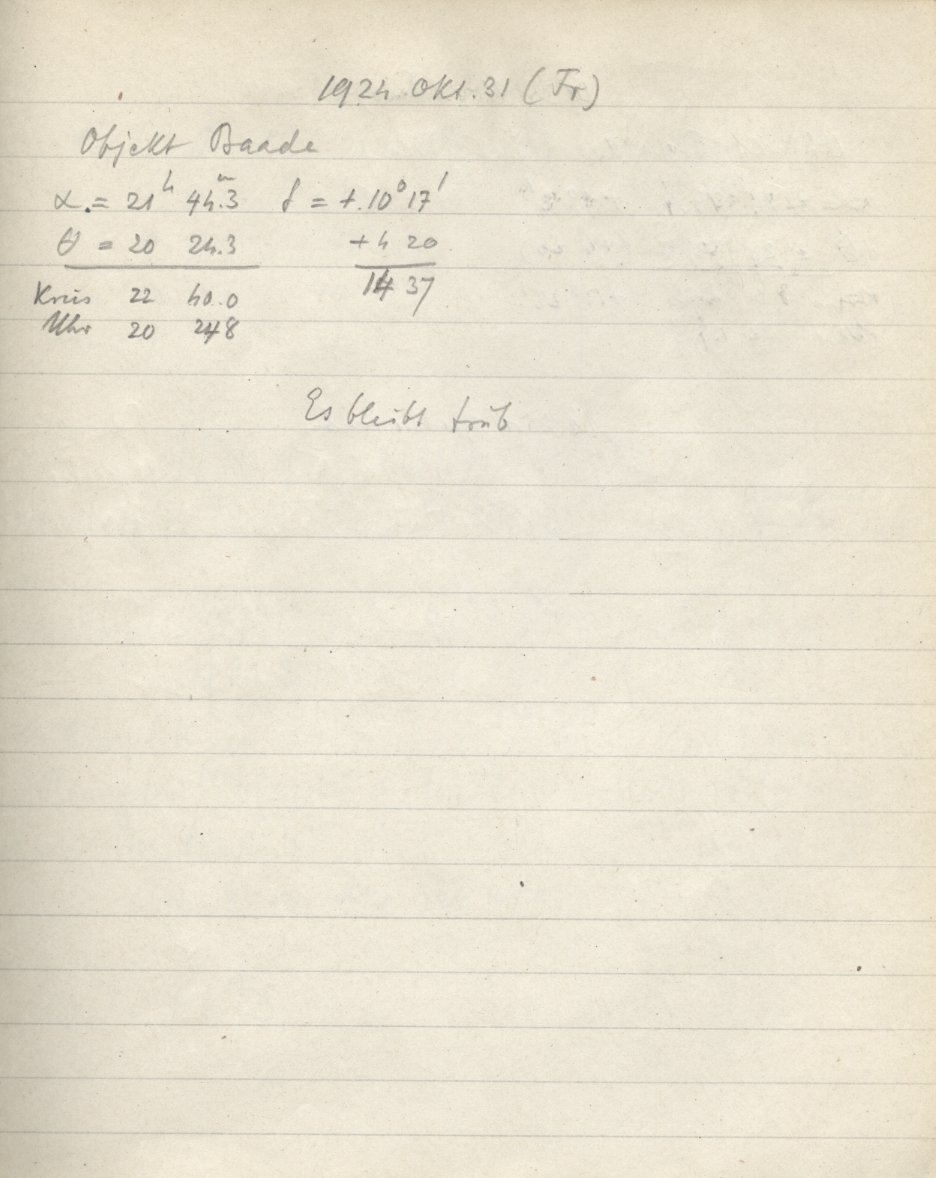 1924 Okt. 31 (Fr)
Objekt Baade
α = 21ʰ 44ᵐ.3 δ = +.10° 17'
θ = 20 24.3 +4 20
Kreis 22 40.0 14 37
Uhr 20 24.8
Es bleibt trüb